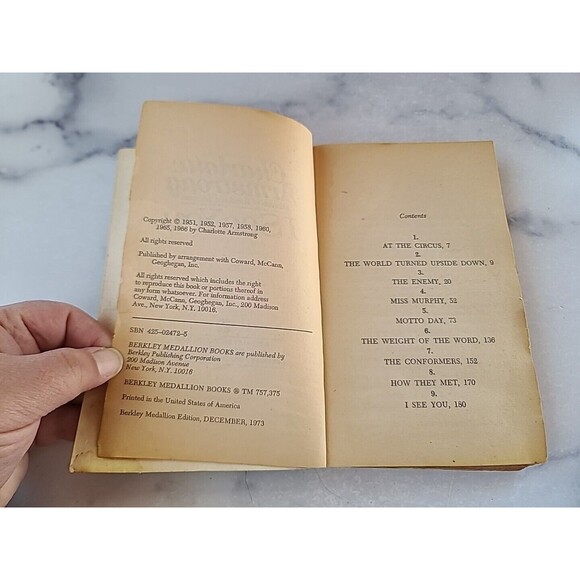 Copyright © 1951, 1952, 1957, 1958, 1960,
1965, 1966 by Charlotte Armstrong
All rights reserved
Published by arrangement with Coward, McCann,
Geoghegan, Inc.
All rights reserved which includes the right
to reproduce this book or portions thereof in
any form whatsoever. For information address
Coward, McCann, Geoghegan, Inc., 200 Madison
Ave., New York, N.Y. 10016.
SBN 425-02472-5
BERKLEY MEDALLION BOOKS are published by
Berkley Publishing Corporation
200 Madison Avenue
New York, N.Y. 10016
BERKLEY MEDALLION BOOKS ® TM 757,375
Printed in the United States of America
Berkley Medallion Edition, DECEMBER, 1973
Contents
1.
AT THE CIRCUS, 7
2.
THE WORLD TURNED UPSIDE DOWN, 9
3.
THE ENEMY, 20
4.
MISS MURPHY, 52
5.
MOTTO DAY, 73
6.
THE WEIGHT OF THE WORD, 136
7.
THE CONFORMERS, 152
8.
HOW THEY MET, 170
9.
I SEE YOU, 180